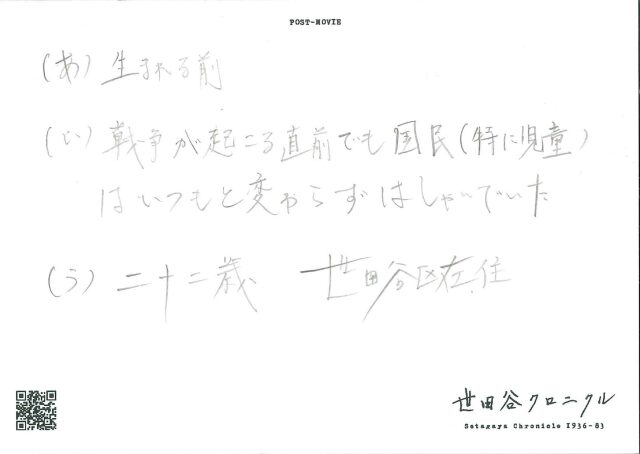 POST-MOVIE
(あ) 生まれる前
(い) 戦争が起こる直前でも国民(特に児童)
はいつもと変わらずはしゃいでいた
(う) 二十二歳 世田谷区在住
世田谷クロニクル
Setagaya Chronicle 1936-83